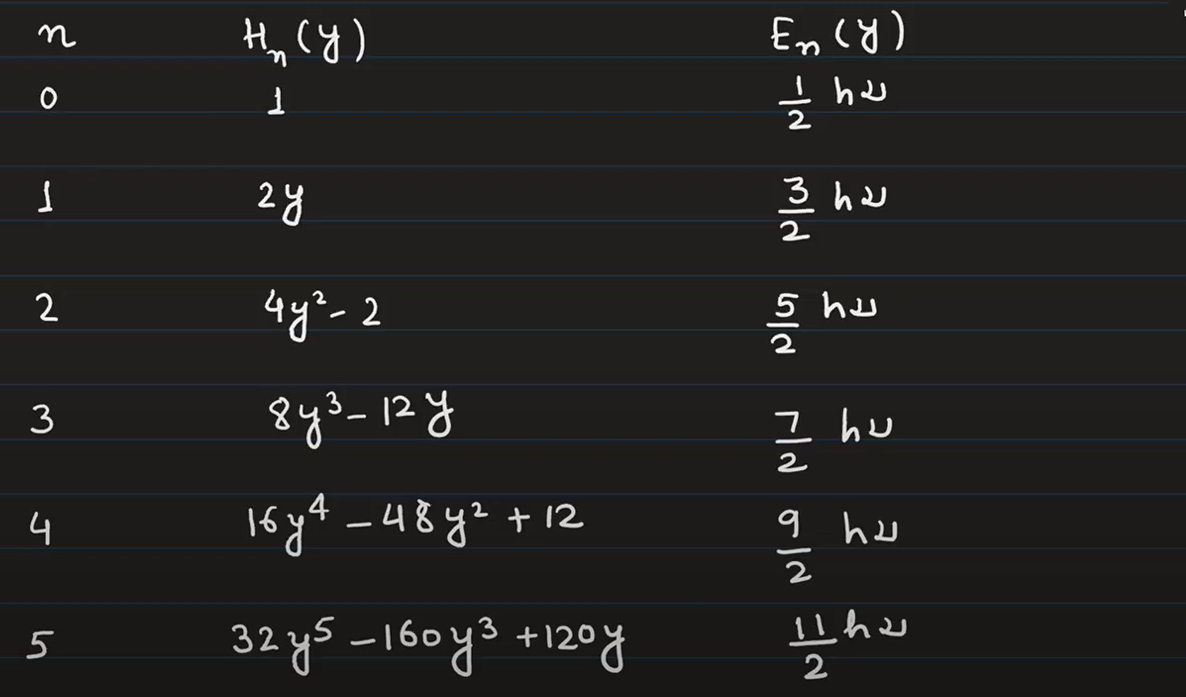 n H_n(y) E_n(y)
0 1 1/2 hν
1 2y 3/2 hν
2 4y² - 2 5/2 hν
3 8y³ - 12y 7/2 hν
4 16y⁴ - 48y² + 12 9/2 hν
5 32y⁵ - 160y³ + 120y 11/2 hν